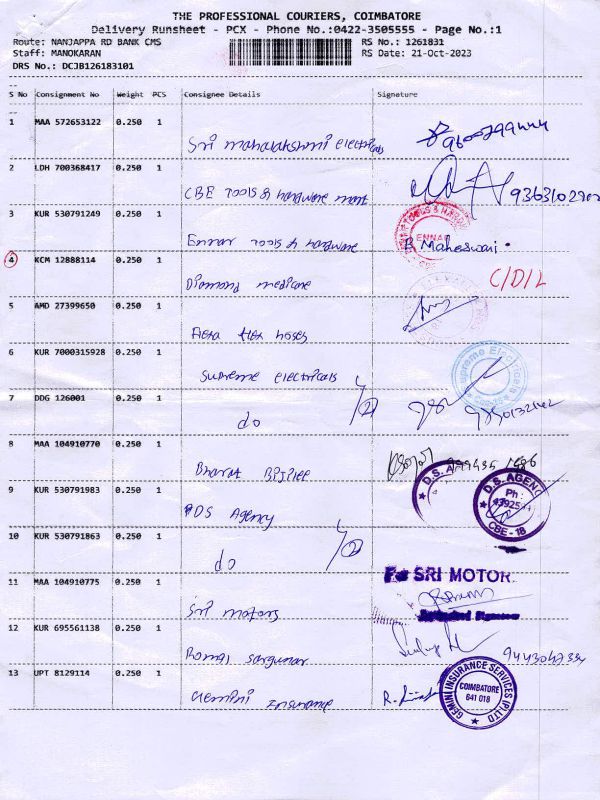 THE PROFESSIONAL COURIERS, COIMBATORE
Delivery Runsheet - PCX - Phone No.:0422-3505555 - Page No.:1
Route: NANJAPPA RD BANK CMS
RS No.: 1261831
Staff: MANOKARAN
RS Date: 21-Oct-2023
DRS No.: DCJB126183101
S No Consignment No Weight PCS Consignee Details Signature
1 MAA 572653122 0.250 1
Sri mahalakshmi electricals
2 LDH 700368417 0.250 1
CBE Tools & hardware mart
3 KUR 530791249 0.250 1
Ennar Tools & hardware B. Maheswari.
ENNAR
4 KCM 12888114 0.250 1
Diamond medicare C/D/L
5 AMD 27399650 0.250 1
flex hoses
6 KUR 7000315928 0.250 1
Supreme electricals
Supreme Electricals
7 DDG 126001 0.250 1
do
8 MAA 104910770 0.250 1
Bharat Bijlee
D.S. A
9 KUR 530791983 0.250 1
DS Agency
D.S. AGENC
Ph :
CBE - 18
10 KUR 530791863 0.250 1
do
11 MAA 104910775 0.250 1
Sri motors
For SRI MOTOR
12 KUR 695561138 0.250 1
13 UPT 8129114 0.250 1
Gemini Insurance
GEMINI INSURANCE SERVICES (P) LTD
COIMBATORE
641 018